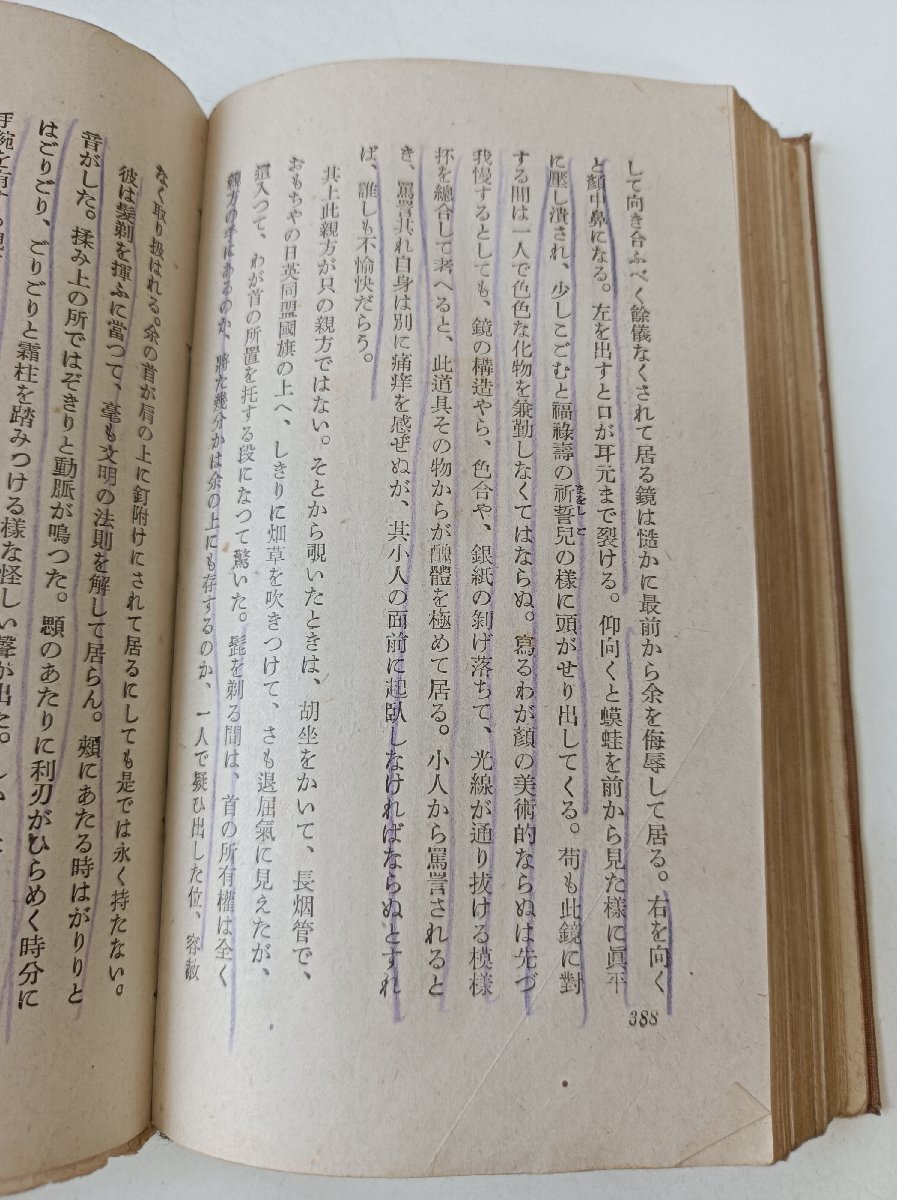 して向き合ふべく餘儀なくされて居る鏡は慥かに最前から余を侮辱して居る。右を向く
と顏中鼻になる。左を出すと口が耳元まで裂ける。仰向くと蟇蛙を前から見た樣に眞平
に壓し潰され、少しこごむと福祿壽の祈誓兒の樣に頭がせり出してくる。苟も此鏡に對
まをしご
する間は一人で色色な化物を兼勤しなくてはならぬ。寫るわが顏の美術的ならぬは先づ
我慢するとしても、鏡の構造やら、色合や、銀紙の剝げ落ちて、光線が通り拔ける模樣
抔を總合して考へると、此道具その物からが醜體を極めて居る。小人から罵詈されると
き、罵詈其れ自身は別に痛痒を感ぜぬが、其小人の面前に起臥しなければならぬとすれ
ば、誰しも不愉快だらう。
其上此親方が只の親方ではない。そとから覗いたときは、胡坐をかいて、長烟管で、
おもちやの日英同盟國旗の上へ、しきりに烟草を吹きつけて、さも退屈氣に見えたが、
這入つて、わが首の所置を托する段になつて驚いた。髭を剃る間は、首の所有權は全く
親方の手にあるのか、將た幾分かは余の上にも存するのか、一人で疑ひ出した位、容赦
388
なく取り扱はれる。余の首が肩の上に釘附けにされて居るにしても是では永く持たない。
彼は髮剃を揮ふに當つて、毫も文明の法則を解して居らん。頰にあたる時はがりりと
音がした。揉み上の所ではぞきりと動脈が鳴つた。顋のあたりに利刃がひらめく時分に
はごりごり、ごりごりと霜柱を踏みつける樣な怪しい聲が出た。